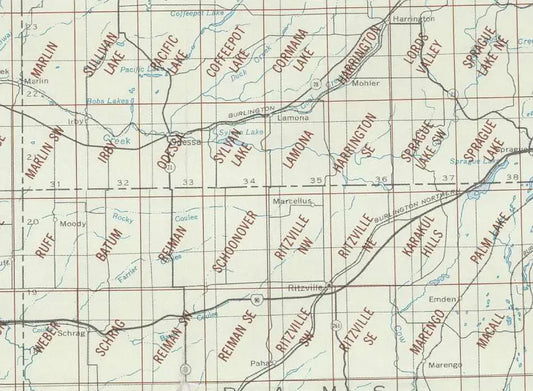 Coffeepot Lake
Harrington
23
MARLIN
SULLIVAN LAKE
PACIFIC LAKE
COFFEEPOT LAKE
CORMANA LAKE
HARRINGTON
LORDS VALLEY
SPRAGUE LAKE NE
Marlin
Pacific Lake
Duck Creek
Mohler
22
Bobs Lakes
BURLINGTON
Irby
Lamona
Creek
Sylvan Lake
Odessa
21
MARLIN SW
IRBY
ODESSA
SYLVAN LAKE
LAMONA
HARRINGTON SE
SPRAGUE LAKE SW
SPRAGUE LAKE
Sprague
Sprague Lake
31
32
33
34
35
36
37
38
Marcellus
BURLINGTON NORTHERN
20
Moody
Rocky
Coulee
RUFF
BATUM
REIMAN
SCHOONOVER
RITZVILLE NW
RITZVILLE NE
KARAKUL HILLS
PALM LAKE
Farrier
Coulee
19
Ritzville
90
Emden
WEBER
SCHRAG
REIMAN SW
REIMAN SE
RITZVILLE SW
RITZVILLE SE
MARENGO
MACALL
Schrag
Coulee
Cow
Paha
Marengo
A M S